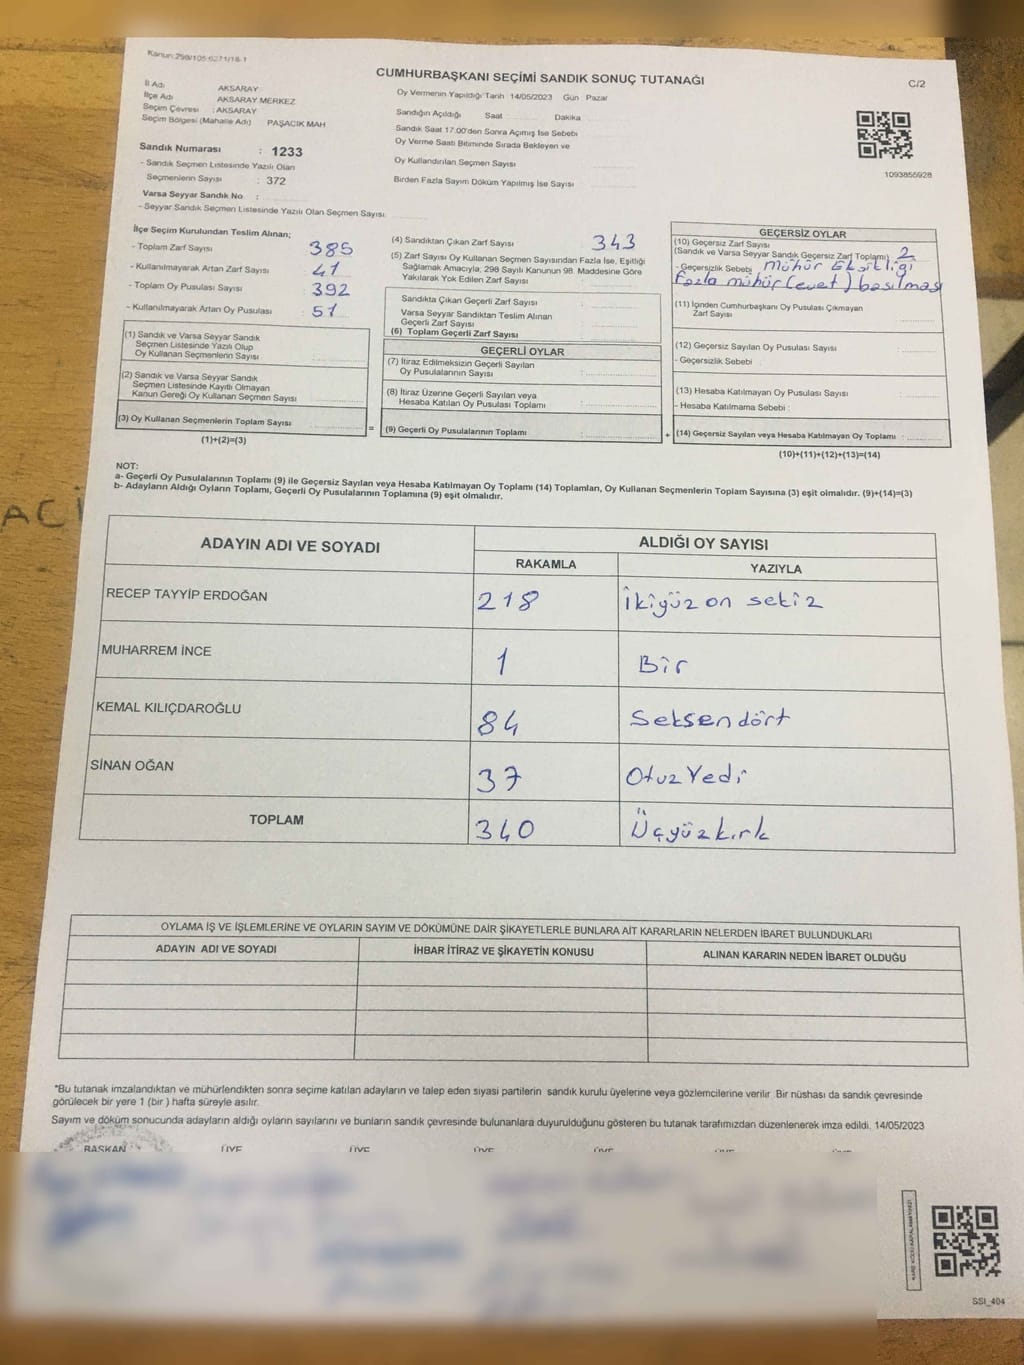 Kanun:298/105-6271/18-1
CUMHURBAŞKANI SEÇİMİ SANDIK SONUÇ TUTANAĞI
C/2
İl Adı AKSARAY
İlçe Adı AKSARAY MERKEZ
Seçim Çevresi : AKSARAY
Seçim Bölgesi (Mahalle Adı) PAŞACIK MAH
Sandık Numarası : 1233
- Sandık Seçmen Listesinde Yazılı Olan
Seçmenlerin Sayısı : 372
Varsa Seyyar Sandık No :
- Seyyar Sandık Seçmen Listesinde Yazılı Olan Seçmen Sayısı
Oy Vermenin Yapıldığı Tarih 14/05/2023 Gün Pazar
Sandığın Açıldığı Saat Dakika
Sandık Saat 17.00'den Sonra Açımış İse Sebebi
Oy Verme Saati Bitiminde Sırada Bekleyen ve
Oy Kullandırılan Seçmen Sayısı
Birden Fazla Sayım Döküm Yapılmış İse Sayısı
1093855928
İlçe Seçim Kurulundan Teslim Alınan;
- Toplam Zarf Sayısı 385
- Kullanılmayarak Artan Zarf Sayısı 41
- Toplam Oy Pusulası Sayısı 392
- Kullanılmayarak Artan Oy Pusulası 51
(1) Sandık ve Varsa Seyyar Sandık
Seçmen Listesinde Yazılı Olup
Oy Kullanan Seçmenlerin Sayısı
(2) Sandık ve Varsa Seyyar Sandık
Seçmen Listesinde Kayıtlı Olmayan
Kanun Gereği Oy Kullanan Seçmen Sayısı
(3) Oy Kullanan Seçmenlerin Toplam Sayısı
(1)+(2)=(3)
=
(4) Sandıktan Çıkan Zarf Sayısı 343
(5) Zarf Sayısı Oy Kullanan Seçmen Sayısından Fazla İse, Eşitliği
Sağlamak Amacıyla, 298 Sayılı Kanunun 98. Maddesine Göre
Yakılarak Yok Edilen Zarf Sayısı
Sandıkta Çıkan Geçerli Zarf Sayısı
Varsa Seyyar Sandıktan Teslim Alınan
Geçerli Zarf Sayısı
(6) Toplam Geçerli Zarf Sayısı
GEÇERLİ OYLAR
(7) İtiraz Edilmeksizin Geçerli Sayılan
Oy Pusulalarının Sayısı
(8) İtiraz Üzerine Geçerli Sayılan veya
Hesaba Katılan Oy Pusulası Toplamı
(9) Geçerli Oy Pusulalarının Toplamı
+
GEÇERSİZ OYLAR
(10) Geçersiz Zarf Sayısı
(Sandık ve Varsa Seyyar Sandık Geçersiz Zarf Toplamı) 2
- Geçersizlik Sebebi Mühür Eksikliği
Fazla mühür (evet) basılması
(11) İçinden Cumhurbaşkanı Oy Pusulası Çıkmayan
Zarf Sayısı
(12) Geçersiz Sayılan Oy Pusulası Sayısı
- Geçersizlik Sebebi :
(13) Hesaba Katılmayan Oy Pusulası Sayısı
- Hesaba Katılmama Sebebi :
(14) Geçersiz Sayılan veya Hesaba Katılmayan Oy Toplamı :
(10)+(11)+(12)+(13)=(14)
NOT:
a- Geçerli Oy Pusulalarının Toplamı (9) ile Geçersiz Sayılan veya Hesaba Katılmayan Oy Toplamı (14) Toplamları, Oy Kullanan Seçmenlerin Toplam Sayısına (3) eşit olmalıdır. (9)+(14)=(3)
b- Adayların Aldığı Oyların Toplamı, Geçerli Oy Pusulalarının Toplamına (9) eşit olmalıdır.
ACI
ADAYIN ADI VE SOYADI
ALDIĞI OY SAYISI
RAKAMLA YAZIYLA
RECEP TAYYİP ERDOĞAN 218 İkiyüz on sekiz
MUHARREM İNCE 1 Bir
KEMAL KILIÇDAROĞLU 84 Seksendört
SİNAN OĞAN 37 OtuzYedi
TOPLAM 340 Üçyüzkırk
OYLAMA İŞ VE İŞLEMLERİNE VE OYLARIN SAYIM VE DÖKÜMÜNE DAİR ŞİKAYETLERLE BUNLARA AİT KARARLARIN NELERDEN İBARET BULUNDUKLARI
ADAYIN ADI VE SOYADI İHBAR İTİRAZ VE ŞİKAYETİN KONUSU ALINAN KARARIN NEDEN İBARET OLDUĞU
*Bu tutanak imzalandıktan ve mühürlendikten sonra seçime katılan adayların ve talep eden siyasi partilerin sandık kurulu üyelerine veya gözlemcilerine verilir. Bir nüshası da sandık çevresinde
görülecek bir yere 1 (bir ) hafta süreyle asılır.
Sayım ve döküm sonucunda adayların aldığı oyların sayılarını ve bunların sandık çevresinde bulunanlara duyurulduğunu gösteren bu tutanak tarafımızdan düzenlenerek imza edildi. 14/05/2023
BAŞKAN ÜYE ÜYE ÜYE ÜYE ÜYE ÜYE
SSI_404